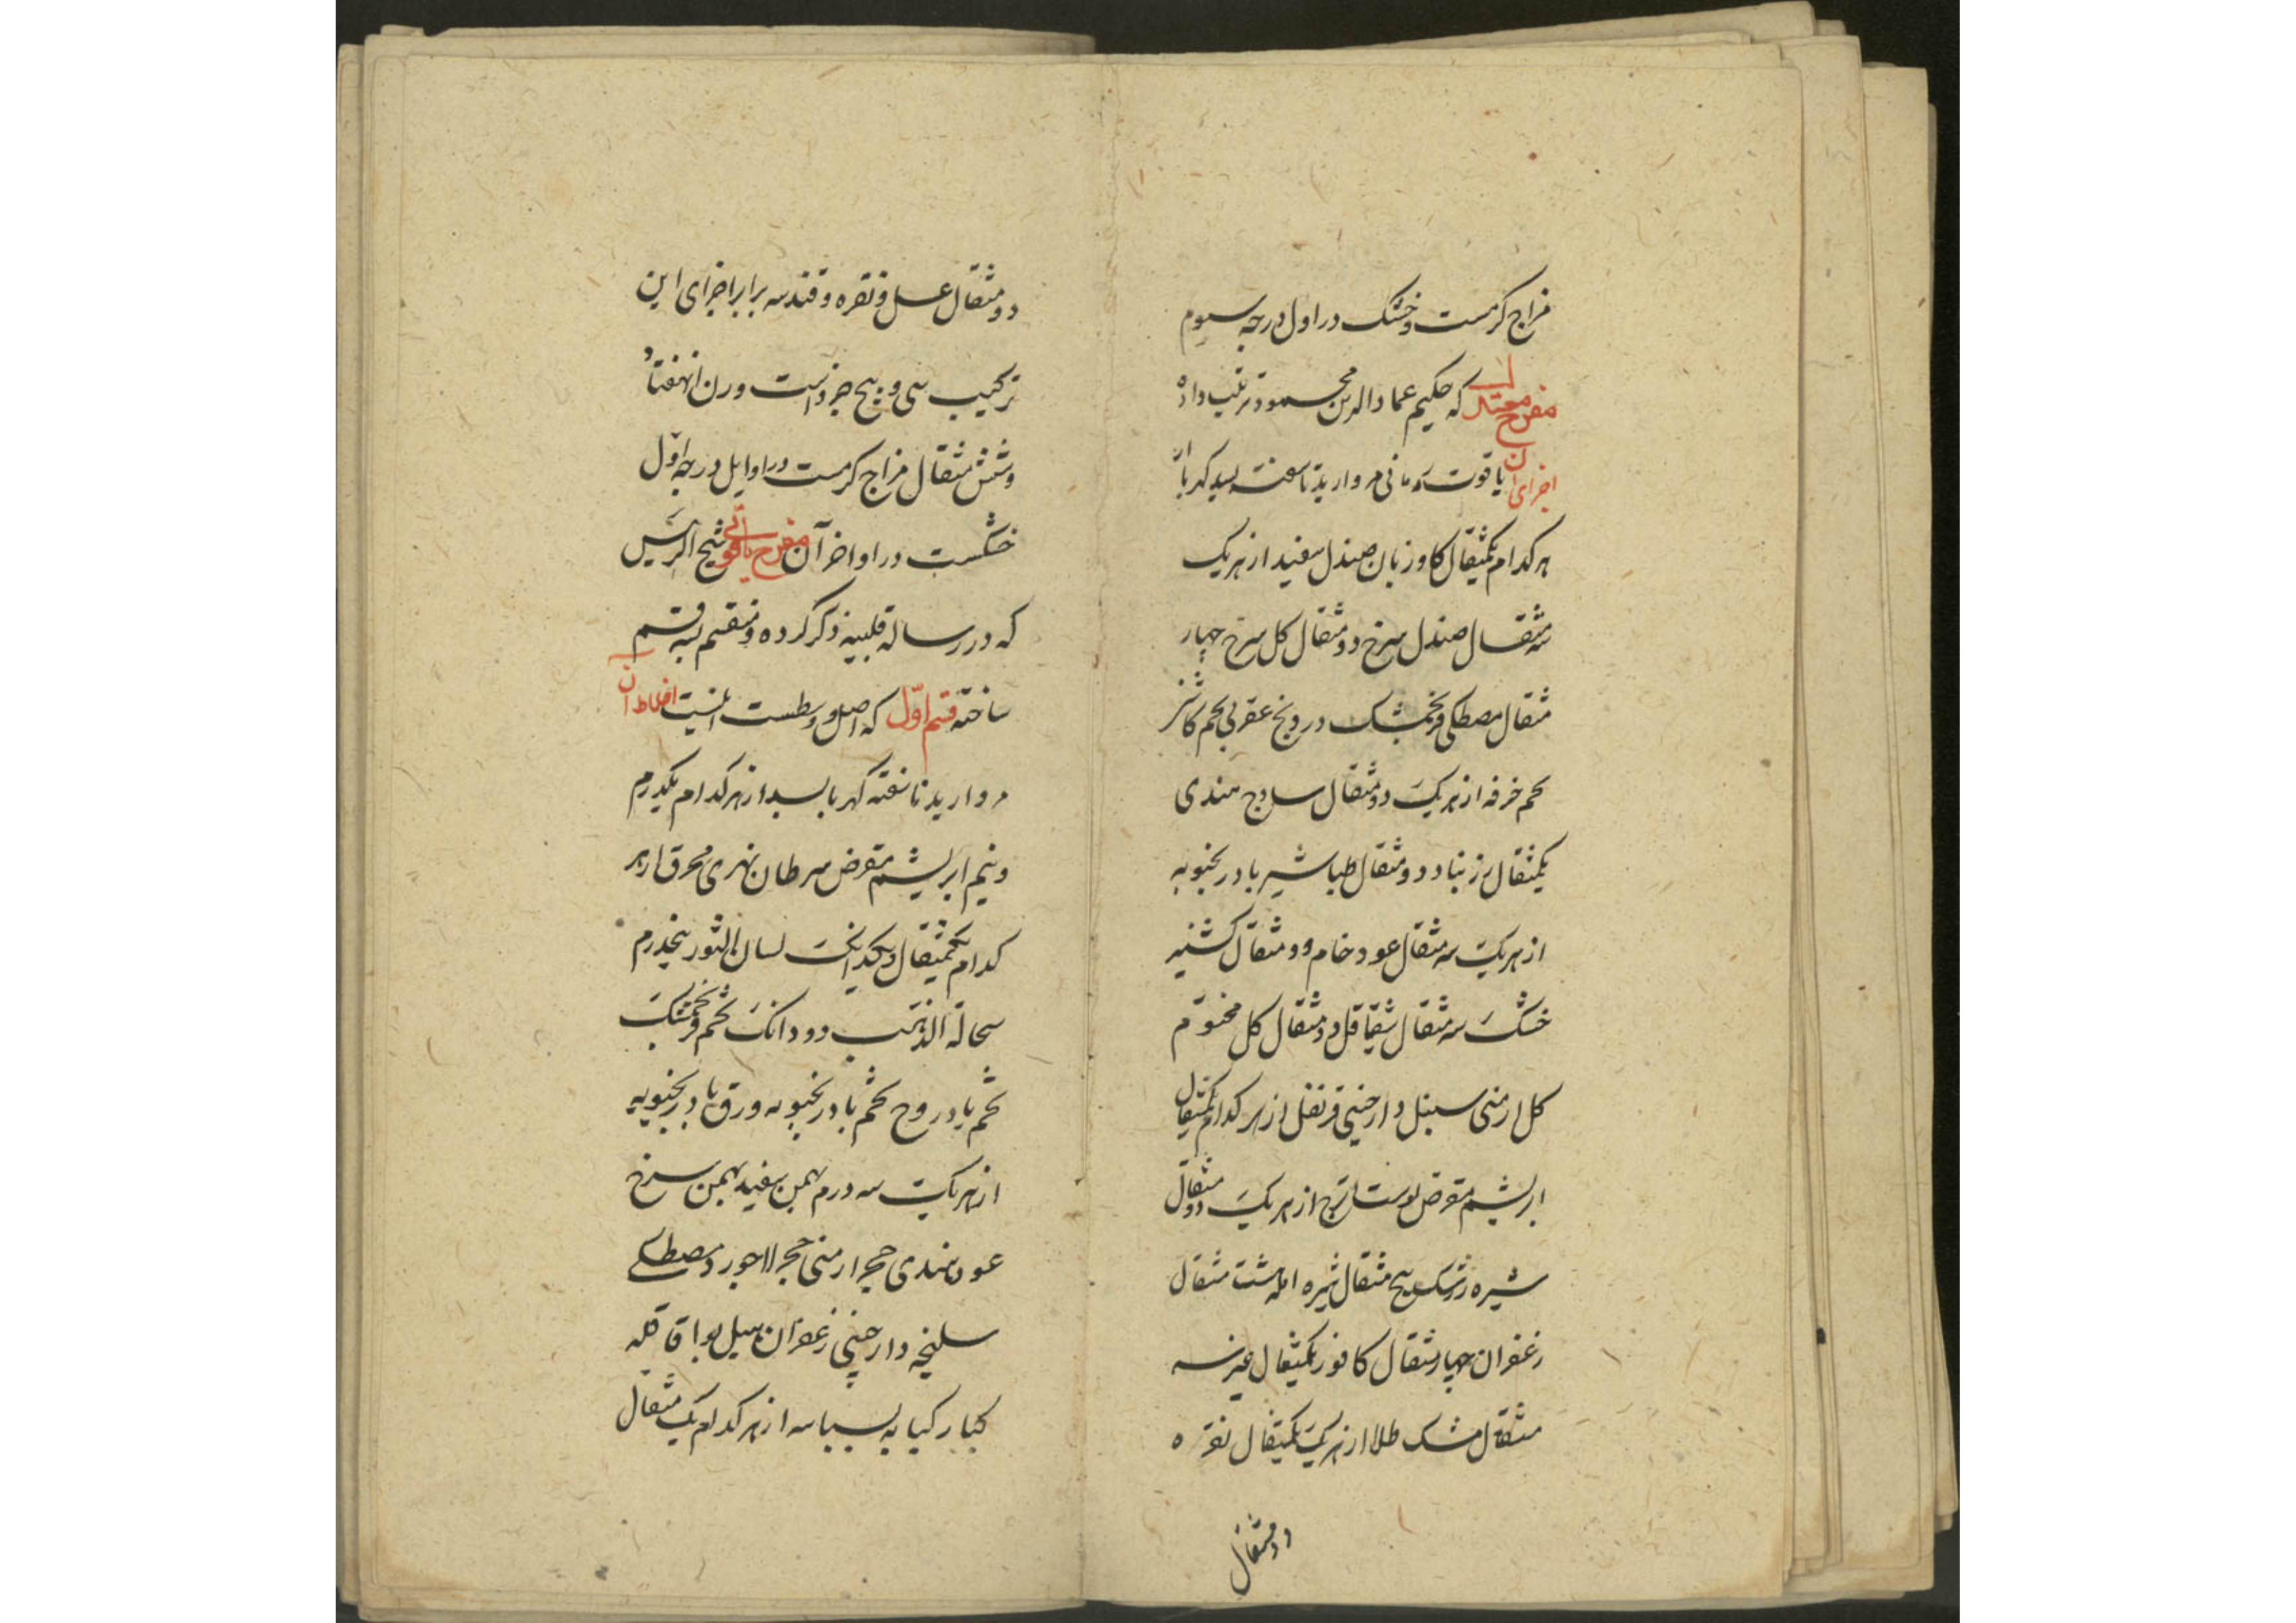 مزاج گرمست و خشک در اول درجه سیوم
مفرح معتدل که حکیم عماد الدین محمود ترتیب داده
اجزای آن یاقوت رمانی مروارید ناسفته بسد کهربا از
هر کدام یکمثقال کاوزبان صندل سفید از هریک
سه مثقال صندل سرخ دو مثقال کل سرخ چهار
مثقال مصطکی فرنجمشک درونج عقربی تخم کاسنی
تخم خرفه از هریک دو مثقال ساذج هندی
یکمثقال زرنباد دو مثقال طباشیر بادرنجبویه
از هریک سه مثقال عود خام دو مثقال کشنیز
خشک سه مثقال شقاقل دو مثقال کل مختوم
کل ارمنی سنبل دارچینی قرنفل از هر کدام یکمثقال
ابریشم مقرض پوست اترج از هریک دو مثقال
شیره زرشک پنج مثقال شیره امله هشت مثقال
زعفران چهار مثقال کافور یکمثقال عنبر سه
مثقال مشک طلا از هریک یکمثقال نقره
دو مثقال
دو مثقال عسل و نقره و قند سه برابر اجزای این
ترکیب سی و پنج جزو است وزن ان هفتاد
و شش مثقال مزاج گرمست در اوایل درجه اول
خشکست در اواخر آن مفرح یاقوتی شیخ الرئیس
که در رساله قلبیه ذکر کرده و منقسم بسه قسم
ساخته قسم اول که اصل و وسطست اینست اخلاط آن
مروارید ناسفته کهربا بسد از هر کدام یکدرم
و نیم ابریشم مقرض سرطان نهری محرق از هر
کدام یکمثقال و یکدانک لسان الثور پنجدرم
سحالة الذهب دو دانک تخم فرنجمشک
تخم بادروج تخم بادرنجبویه ورق بادرنجبویه
از هریک سه درم بهمن سفید بهمن سرخ
عود هندی حجر ارمنی حجر لاجورد مصطکی
سلیخه دارچینی زعفران هیل بوا قاقله
کبار کبابه بسباسه از هر کدام یک مثقال